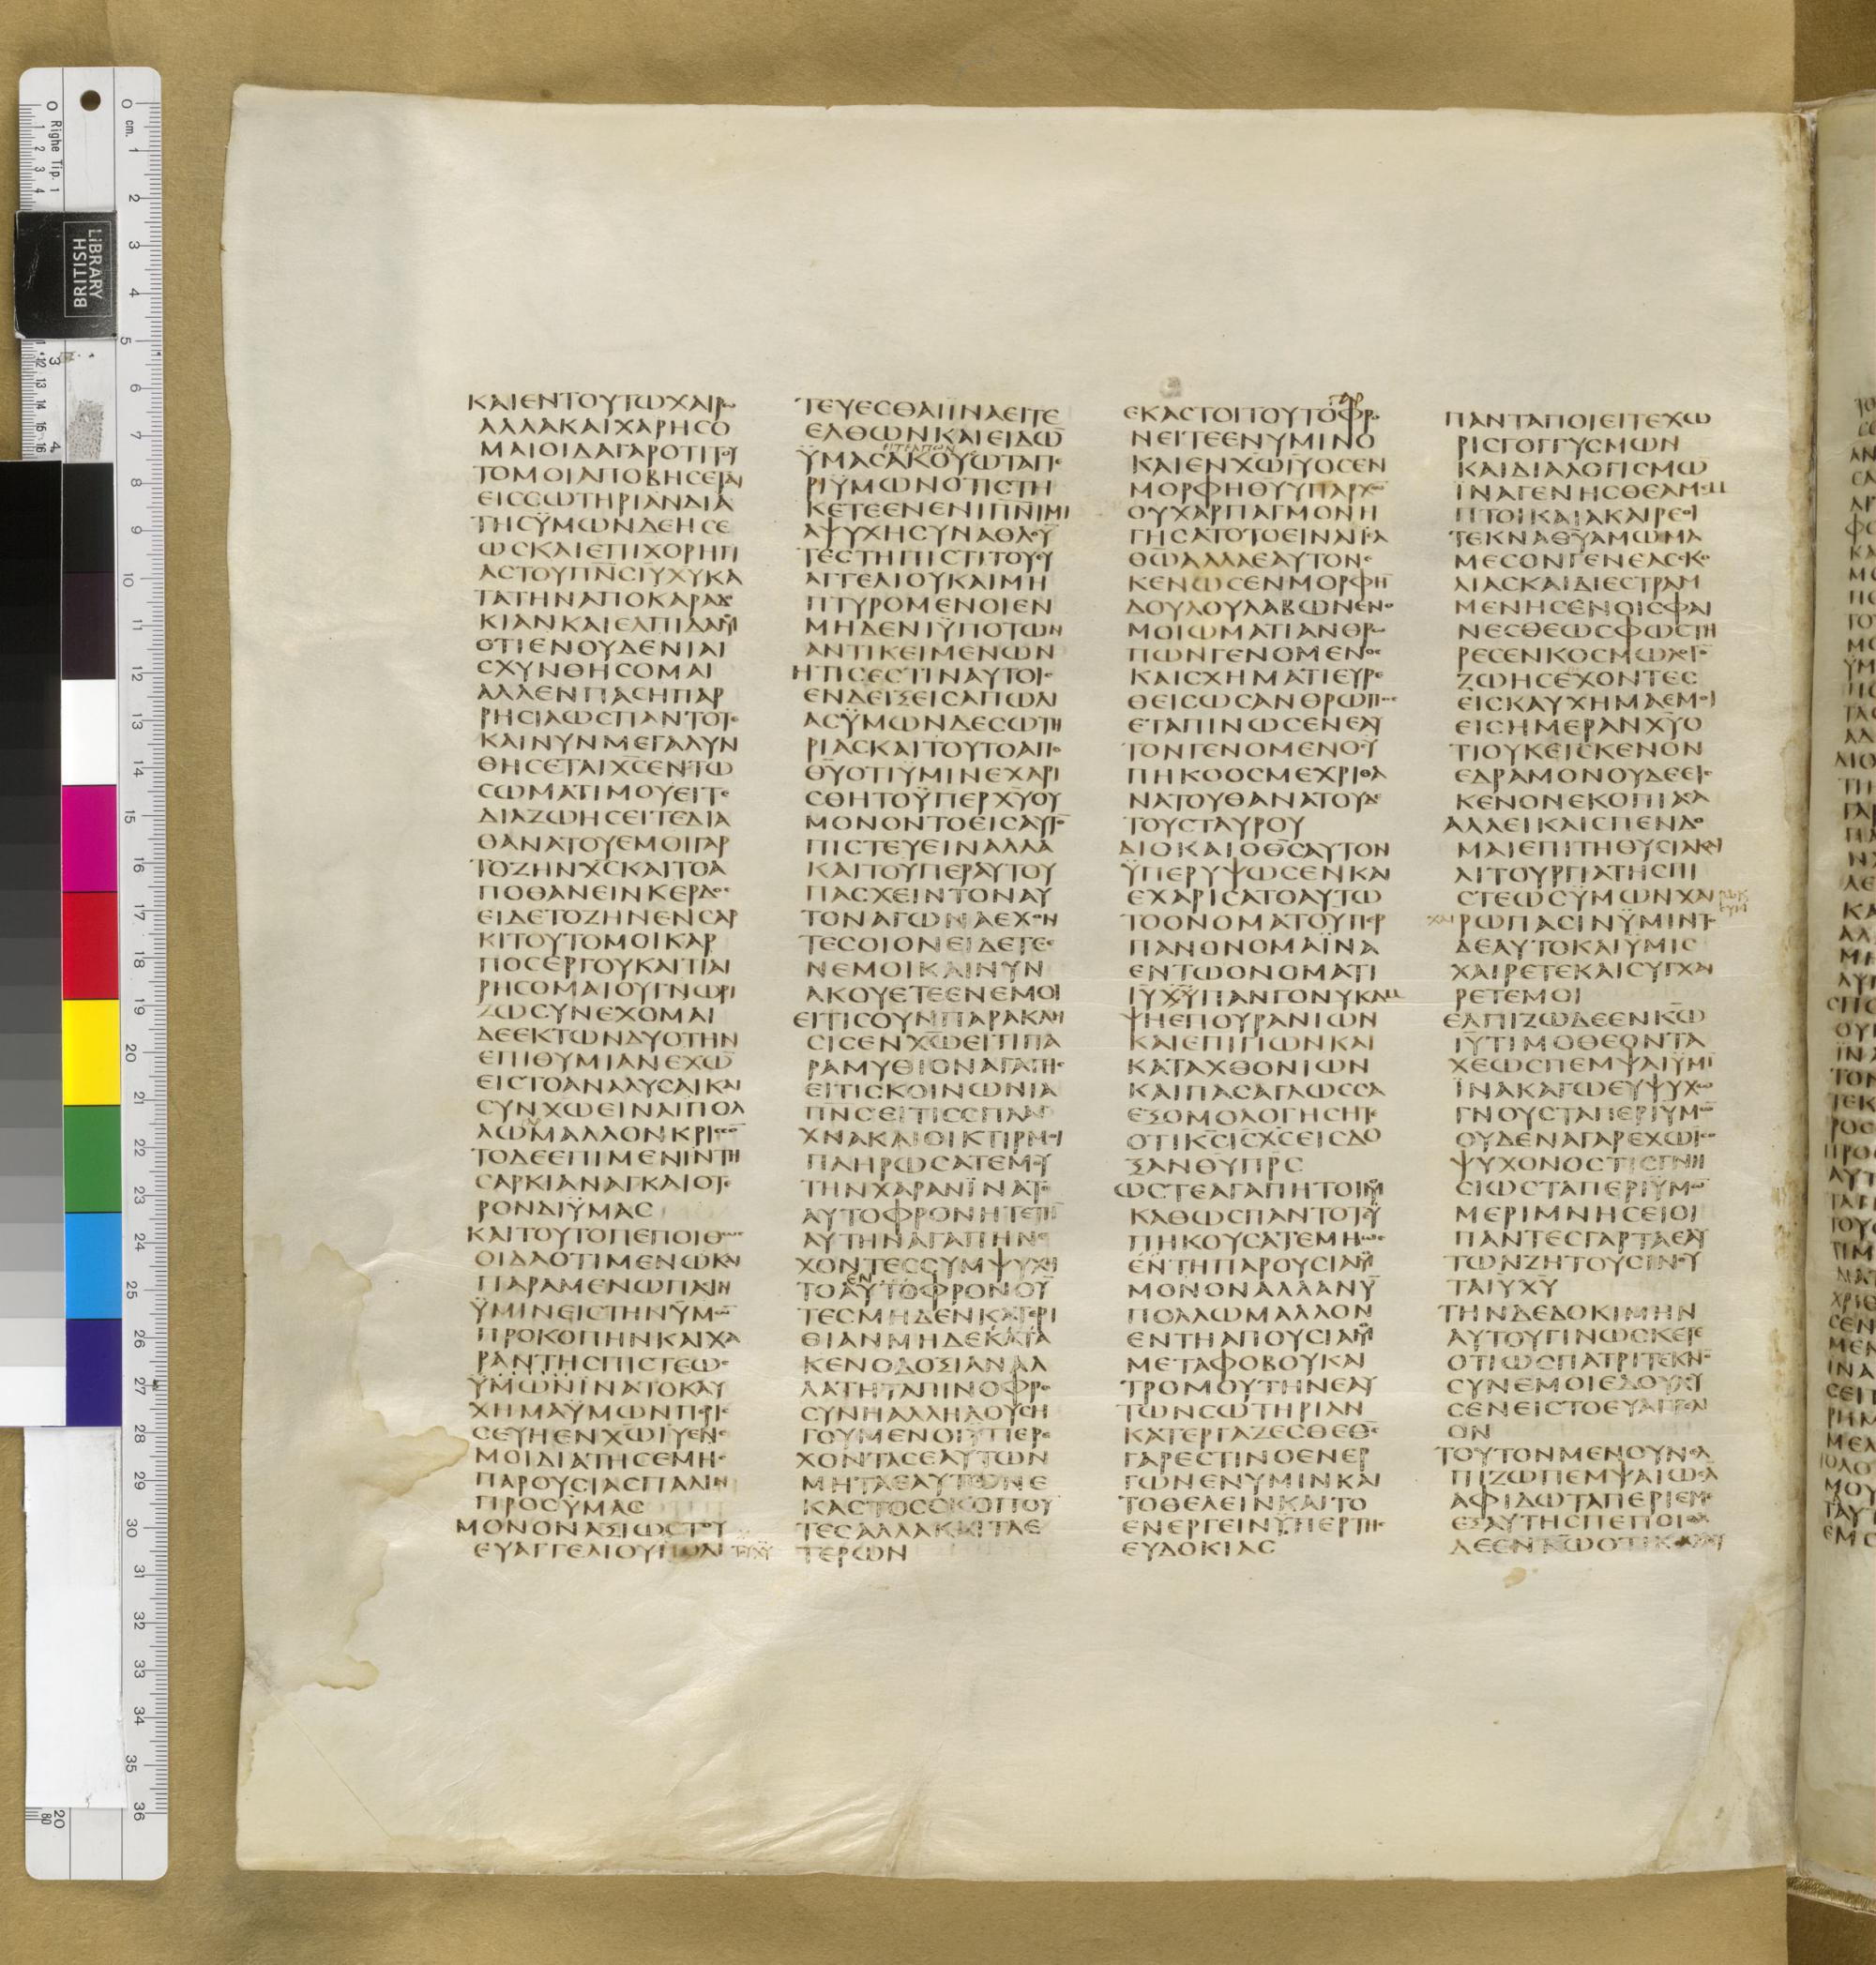 ΚΑΙΕΝΤΟΥΤΩΧΑΙΡΩ
ΑΛΛΑΚΑΙΧΑΡΗϹΟ
ΜΑΙΟΙΔΑΓΑΡΟΤΙΤΟΥ
ΤΟΜΟΙΑΠΟΒΗϹΕΤΑΙ
ΕΙϹϹΩΤΗΡΙΑΝΔΙΑ
ΤΗϹΫΜΩΝΔΕΗϹΕ
ΩϹΚΑΙΕΠΙΧΟΡΗΓΙ
ΑϹΤΟΥΠΝ̅Ϲ̅ΙΥ̅ΧΥ̅ΚΑ
ΤΑΤΗΝΑΠΟΚΑΡΑΔΟ
ΚΙΑΝΚΑΙΕΛΠΙΔΑΜΟΥ
ΟΤΙΕΝΟΥΔΕΝΙΑΙ
ϹΧΥΝΘΗϹΟΜΑΙ
ΑΛΛΕΝΠΑϹΗΠΑΡ
ΡΗϹΙΑΩϹΠΑΝΤΟΤΕ
ΚΑΙΝΥΝΜΕΓΑΛΥΝ
ΘΗϹΕΤΑΙΧϹ̅ΕΝΤΩ
ϹΩΜΑΤΙΜΟΥΕΙΤΕ
ΔΙΑΖΩΗϹΕΙΤΕΔΙΑ
ΘΑΝΑΤΟΥΕΜΟΙΓΑΡ
ΤΟΖΗΝΧϹ̅ΚΑΙΤΟΑ
ΠΟΘΑΝΕΙΝΚΕΡΔΟϹ
ΕΙΔΕΤΟΖΗΝΕΝϹΑΡ
ΚΙΤΟΥΤΟΜΟΙΚΑΡ
ΠΟϹΕΡΓΟΥΚΑΙΤΙΑΙ
ΡΗϹΟΜΑΙΟΥΓΝΩΡΙ
ΖΩϹΥΝΕΧΟΜΑΙ
ΔΕΕΚΤΩΝΔΥΟΤΗΝ
ΕΠΙΘΥΜΙΑΝΕΧΩ̅
ΕΙϹΤΟΑΝΑΛΥϹΑΙΚΑΙ
ϹΥΝΧΩ̅ΕΙΝΑΙΠΟΛ
ΛΩΜΑΛΛΟΝΚΡΙϹϹΟ̅
ΤΟΔΕΕΠΙΜΕΝΙΝΤΗ
ϹΑΡΚΙΑΝΑΓΚΑΙΟΤΕ
ΡΟΝΔΙΫΜΑϹ
ΚΑΙΤΟΥΤΟΠΕΠΟΙΘΩϹ
ΟΙΔΑΟΤΙΜΕΝΩΚΑΙ
ΠΑΡΑΜΕΝΩΠΑϹΙ̅
ΫΜΙΝΕΙϹΤΗΝΫΜΩ̅
ΠΡΟΚΟΠΗΝΚΑΙΧΑ
ΡΑΝΤΗϹΠΙϹΤΕΩϹ
ΥΜΩΝΪΝΑΤΟΚΑΥ
ΧΗΜΑΫΜΩΝΠΕΡΙϹ
ϹΕΥΗΕΝΧΩ̅ΙΥ̅ΕΝΕ
ΜΟΙΔΙΑΤΗϹΕΜΗϹ
ΠΑΡΟΥϹΙΑϹΠΑΛΙΝ
ΠΡΟϹΫΜΑϹ
ΜΟΝΟΝΑΞΙΩϹΤΟΥ
ΕΥΑΓΓΕΛΙΟΥ
ΤΕΥΕϹΘΑΙΪΝΑΕΙΤΕ
ΕΛΘΩΝΚΑΙΕΙΔΩ̅
ΫΜΑϹΑΚΟΥΩΤΑΠΕ
ΡΙΫΜΩΝΟΤΙϹΤΗ
ΚΕΤΕΕΝΕΝΙΠΝ̅Ι̅ΜΙ
ΑΨΥΧΗϹΥΝΑΘΛΟΥ̅
ΤΕϹΤΗΠΙϹΤΙΤΟΥΕΥ
ΑΓΓΕΛΙΟΥΚΑΙΜΗ
ΠΤΥΡΟΜΕΝΟΙΕΝ
ΜΗΔΕΝΙΫΠΟΤΩΝ
ΑΝΤΙΚΕΙΜΕΝΩΝ
ΗΤΙϹΕϹΤΙΝΑΥΤΟΙϹ
ΕΝΔΕΙΞΕΙϹΑΠΩΛΙ
ΑϹΫΜΩΝΔΕϹΩΤΗ
ΡΙΑϹΚΑΙΤΟΥΤΟΑΠΟ
ΘΥ̅ΟΤΙΫΜΙΝΕΧΑΡΙ
ϹΘΗΤΟΫΠΕΡΧΥ̅ΟΥ
ΜΟΝΟΝΤΟΕΙϹΑΥΤΟ̅
ΠΙϹΤΕΥΕΙΝΑΛΛΑ
ΚΑΙΤΟΥΠΕΡΑΥΤΟΥ
ΠΑϹΧΕΙΝΤΟΝΑΥ
ΤΟΝΑΓΩΝΑΕΧΟΝ
ΤΕϹΟΙΟΝΕΙΔΕΤΕΕ
ΝΕΜΟΙΚΑΙΝΥΝ
ΑΚΟΥΕΤΕΕΝΕΜΟΙ
ΕΙΤΙϹΟΥΝΠΑΡΑΚΛΗ
ϹΙϹΕΝΧΩ̅ΕΙΤΙΠΑ
ΡΑΜΥΘΙΟΝΑΓΑΠΗϹ
ΕΙΤΙϹΚΟΙΝΩΝΙΑ
ΠΝ̅Ϲ̅ΕΙΤΙϹϹΠΛΑΓ
ΧΝΑΚΑΙΟΙΚΤΙΡΜΟΙ
ΠΛΗΡΩϹΑΤΕΜΟΥ
ΤΗΝΧΑΡΑΝΪΝΑΤΟ
ΑΥΤΟΦΡΟΝΗΤΕΤΗ̅
ΑΥΤΗΝΑΓΑΠΗΝΕ
ΧΟΝΤΕϹϹΥΜΨΥΧΟΙ
ΤΟΑΥΤΟΦΡΟΝΟΥ̅
ΤΕϹΜΗΔΕΝΚΑΤΕΡΙ
ΘΙΑΝΜΗΔΕΚΑΤΑ
ΚΕΝΟΔΟΞΙΑΝΑΛ
ΛΑΤΗΤΑΠΙΝΟΦΡΟ
ϹΥΝΗΑΛΛΗΛΟΥϹΗ
ΓΟΥΜΕΝΟΙΫΠΕΡΕ
ΧΟΝΤΑϹΕΑΥΤΩΝ
ΜΗΤΑΕΑΥΤΩΝΕ
ΚΑϹΤΟϹϹΚΟΠΟΥ̅
ΤΕϹΑΛΛΑΚΑΙΤΑΕ
ΤΕΡΩΝ
ΕΚΑϹΤΟΙΤΟΥΤΟΦΡΟ
ΝΕΙΤΕΕΝΥΜΙΝΟ
ΚΑΙΕΝΧΩ̅ΙΥ̅ΟϹΕΝ
ΜΟΡΦΗΘΥ̅ΥΠΑΡΧΩ̅
ΟΥΧΑΡΠΑΓΜΟΝΗ
ΓΗϹΑΤΟΤΟΕΙΝΑΙΪϹΑ
ΘΩ̅ΑΛΛΑΕΑΥΤΟΝΕ
ΚΕΝΩϹΕΝΜΟΡΦΗ̅
ΔΟΥΛΟΥΛΑΒΩΝΕΝΟ
ΜΟΙΩΜΑΤΙΑΝΘΡΩ
ΠΩΝΓΕΝΟΜΕΝΟϹ
ΚΑΙϹΧΗΜΑΤΙΕΥΡΕ
ΘΕΙϹΩϹΑΝΘΡΩΠΟϹ
ΕΤΑΠΙΝΩϹΕΝΕΑΥ
ΤΟΝΓΕΝΟΜΕΝΟϹΫ
ΠΗΚΟΟϹΜΕΧΡΙΘΑ
ΝΑΤΟΥΘΑΝΑΤΟΥΔΕ
ΤΟΥϹΤΑΥΡΟΥ
ΔΙΟΚΑΙΟΘϹ̅ΑΥΤΟΝ
ΫΠΕΡΥΨΩϹΕΝΚΑΙ
ΕΧΑΡΙϹΑΤΟΑΥΤΩ
ΤΟΟΝΟΜΑΤΟΥΠΕΡ
ΠΑΝΟΝΟΜΑΪΝΑ
ΕΝΤΩΟΝΟΜΑΤΙ
ΙΥ̅ΧΥ̅ΠΑΝΓΟΝΥΚΑΜ
ΨΗΕΠΟΥΡΑΝΙΩΝ
ΚΑΙΕΠΙΓΙΩΝΚΑΙ
ΚΑΤΑΧΘΟΝΙΩΝ
ΚΑΙΠΑϹΑΓΛΩϹϹΑ
ΕΞΟΜΟΛΟΓΗϹΗΤΕ
ΟΤΙΚϹ̅ΙϹ̅ΧϹ̅ΕΙϹΔΟ
ΞΑΝΘΥ̅ΠΡ̅Ϲ̅
ΩϹΤΕΑΓΑΠΗΤΟΙΜΟΥ
ΚΑΘΩϹΠΑΝΤΟΤΕΫ
ΠΗΚΟΥϹΑΤΕΜΗΩϹ
ΕΝΤΗΠΑΡΟΥϹΙΑΜΟΥ
ΜΟΝΟΝΑΛΛΑΝΥ̅
ΠΟΛΛΩΜΑΛΛΟΝ
ΕΝΤΗΑΠΟΥϹΙΑΜΟΥ
ΜΕΤΑΦΟΒΟΥΚΑΙ
ΤΡΟΜΟΥΤΗΝΕΑΥ
ΤΩΝϹΩΤΗΡΙΑΝ
ΚΑΤΕΡΓΑΖΕϹΘΕΘϹ̅
ΓΑΡΕϹΤΙΝΟΕΝΕΡ
ΓΩΝΕΝΥΜΙΝΚΑΙ
ΤΟΘΕΛΕΙΝΚΑΙΤΟ
ΕΝΕΡΓΕΙΝΫΠΕΡΤΗϹ
ΕΥΔΟΚΙΑϹ
ΠΑΝΤΑΠΟΙΕΙΤΕΧΩ
ΡΙϹΓΟΓΓΥϹΜΩΝ
ΚΑΙΔΙΑΛΟΓΙϹΜΩ̅
ΪΝΑΓΕΝΗϹΘΕΑΜΕΜ
ΠΤΟΙΚΑΙΑΚΑΙΡΕΟΙ
ΤΕΚΝΑΘΥ̅ΑΜΩΜΑ
ΜΕϹΟΝΓΕΝΕΑϹϹΚΟ
ΛΙΑϹΚΑΙΔΙΕϹΤΡΑΜ
ΜΕΝΗϹΕΝΟΙϹΦΑΙ
ΝΕϹΘΕΩϹΦΩϹΤΗ
ΡΕϹΕΝΚΟϹΜΩΛΟΓΟ̅
ΖΩΗϹΕΧΟΝΤΕϹ
ΕΙϹΚΑΥΧΗΜΑΕΜΟΙ
ΕΙϹΗΜΕΡΑΝΧΥ̅Ο
ΤΙΟΥΚΕΙϹΚΕΝΟΝ
ΕΔΡΑΜΟΝΟΥΔΕΕΙϹ
ΚΕΝΟΝΕΚΟΠΙΑϹΑ
ΑΛΛΕΙΚΑΙϹΠΕΝΔΟ
ΜΑΙΕΠΙΤΗΘΥϹΙΑΚΑΙ
ΛΙΤΟΥΡΓΙΑΤΗϹΠΙ
ϹΤΕΩϹΫΜΩΝΧΑΙ
ΡΩΠΑϹΙΝΫΜΙΝΤΟ
ΔΕΑΥΤΟΚΑΙΥΜΙϹ
ΧΑΙΡΕΤΕΚΑΙϹΥΓΧΑΙ
ΡΕΤΕΜΟΙ
ΕΛΠΙΖΩΔΕΕΝΚΩ̅
ΙΥ̅ΤΙΜΟΘΕΟΝΤΑ
ΧΕΩϹΠΕΜΨΑΙΫΜΙ̅
ΪΝΑΚΑΓΩΕΥΨΥΧΩ
ΓΝΟΥϹΤΑΠΕΡΙΥΜΩ̅
ΟΥΔΕΝΑΓΑΡΕΧΩΙϹΟ
ΨΥΧΟΝΟϹΤΙϹΓΝΗ
ϹΙΩϹΤΑΠΕΡΙΫΜΩ̅
ΜΕΡΙΜΝΗϹΕΙΟΙ
ΠΑΝΤΕϹΓΑΡΤΑΕΑΥ
ΤΩΝΖΗΤΟΥϹΙΝΟΥ
ΤΑΙΥ̅ΧΥ̅
ΤΗΝΔΕΔΟΚΙΜΗΝ
ΑΥΤΟΥΓΙΝΩϹΚΕΤΕ
ΟΤΙΩϹΠΑΤΡΙΤΕΚΝΟ̅
ϹΥΝΕΜΟΙΕΔΟΥΛΕΥ
ϹΕΝΕΙϹΤΟΕΥΑΓΓΕΛΙ
ΟΝ
ΤΟΥΤΟΝΜΕΝΟΥΝΕΛ
ΠΙΖΩΠΕΜΨΑΙΩϹΑ̅
ΑΦΙΔΩΤΑΠΕΡΙΕΜΕ
ΕΞΑΥΤΗϹΠΕΠΟΙΘΑ
ΔΕΕΝΚΩ̅ΟΤΙΚΑΙ
LIBRARY
BRITISH
Righe Tip. 1
cm.